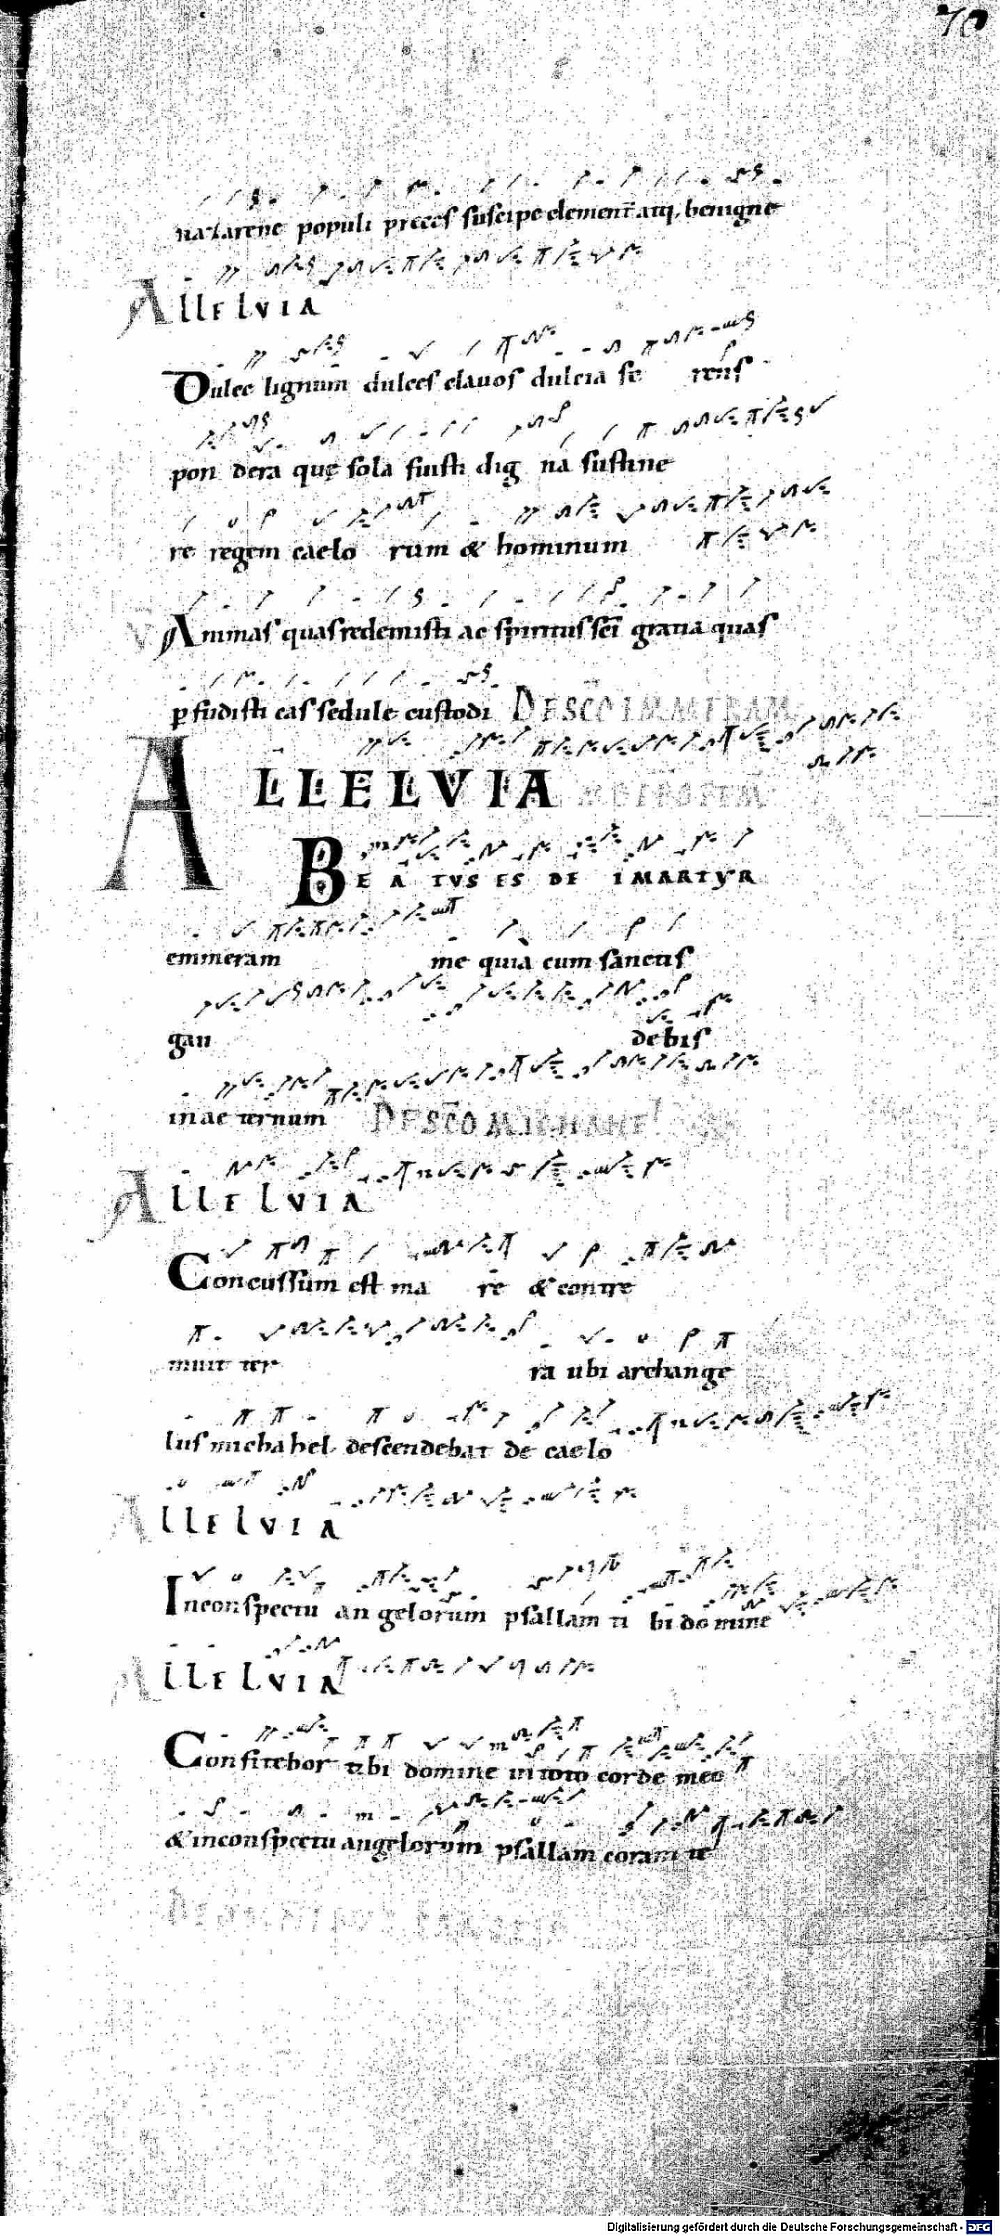 70
nazarene populi preces suscipe clement̄ atq; benigne
ALLELVIA
Dulce lignum dulces clauos dulcia fe rens
pon dera que sola fuisti dig na sustine
re regem caelo rum & hominum
Animas quas redemisti ac spiritus sc̄i gratia quas
pfudisti eas sedule custodi DE SC̄O EMMERAM
ALLELVIA
BE A TVS ES DE I MARTYR
emmeram me quià cum sanctis
gau debis
in ae ternum DE SC̄O MICHAHEL
ALLELVIA
Concussum est ma re & contre
muit ter ra ubi archange
lus michahel descendebat de caelo
ALLELVIA
In conspectu an gelorum psallam ti bi domine
ALLELVIA
Confitebor tibi domine in toto corde meo
& in conspectu angelorum psallam coram te
Digitalisierung gefördert durch die Deutsche Forschungsgemeinschaft - DFG